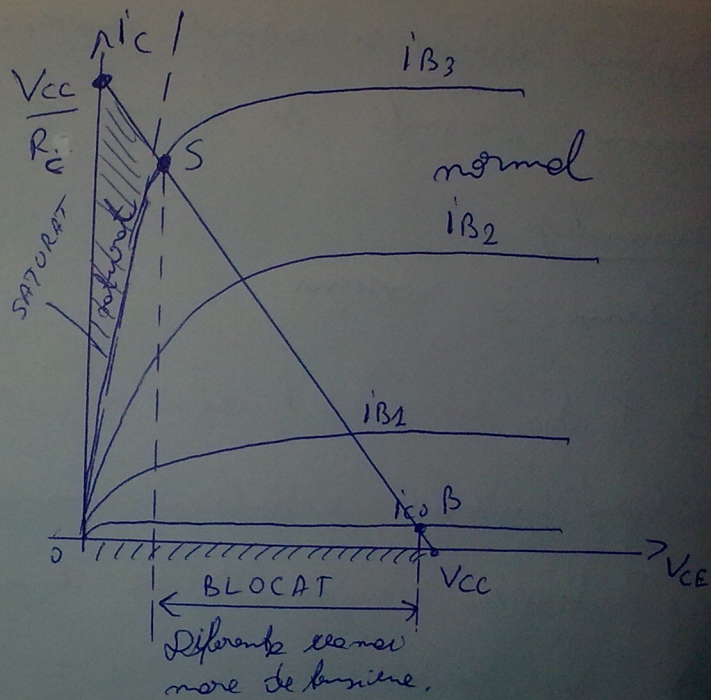 iC
iB3
VCC
Rc
S
normal
iB2
SATURAT
saturat
iB1
iC0 B
0
VCC
VCE
BLOCAT
Diferența
mare de tensiune.